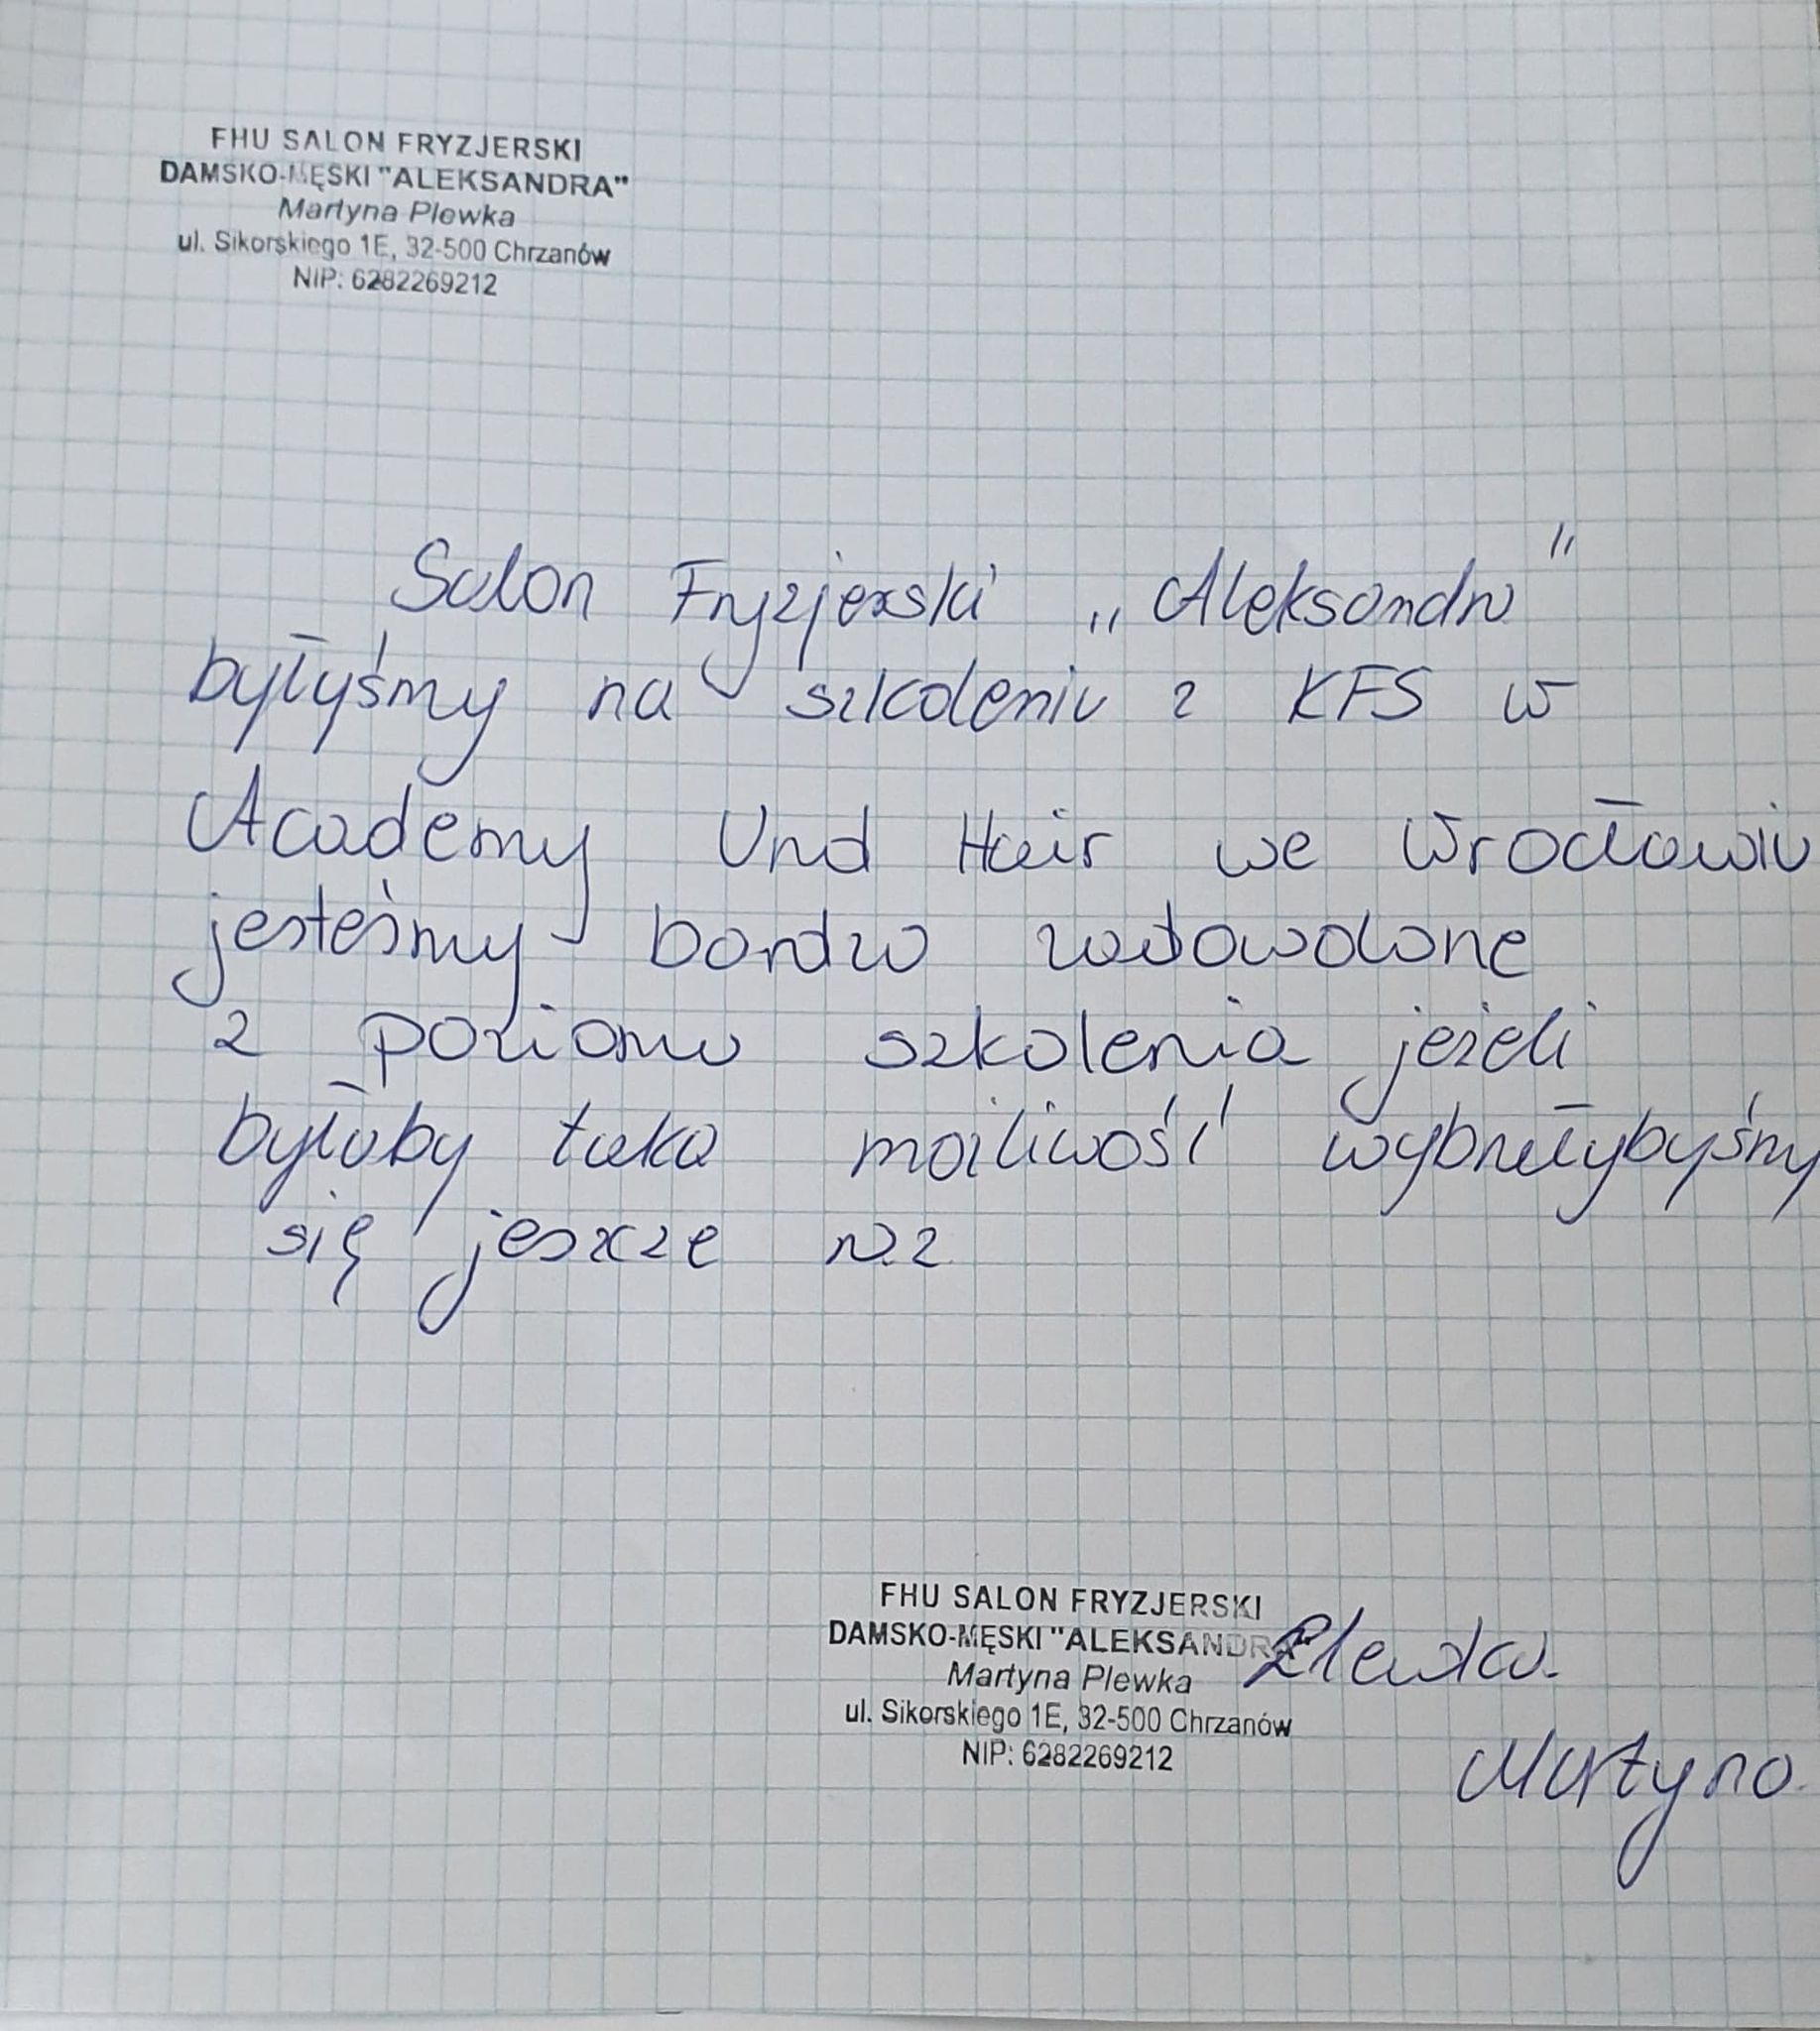 FHU SALON FRYZJERSKI
DAMSKO-MĘSKI "ALEKSANDRA"
Martyna Plewka
ul. Sikorskiego 1E, 32-500 Chrzanów
NIP: 6282269212
Salon Fryzjerski „Aleksandra"
byłyśmy na szkoleniu z KFS w
Academy Und Hair we Wrocławiu
jesteśmy bardzo zadowolone
z poziomu szkolenia jeżeli
byłaby taka możliwość wybrałybyśmy
się jeszcze raz
FHU SALON FRYZJERSKI
DAMSKO-MĘSKI "ALEKSANDRA"
Martyna Plewka
ul. Sikorskiego 1E, 32-500 Chrzanów
NIP: 6282269212
Plewka
Martyna